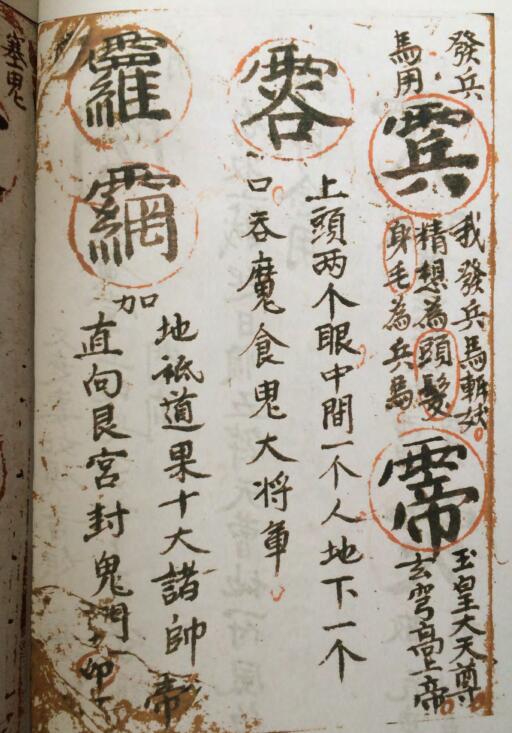 發兵
馬用
𩃷
我發兵馬斬妖
精想為頭髮
身毛為兵馬
玉皇大天尊
玄穹高上帝
上頭两个眼中間一个人地下一个
口吞魔食鬼大将軍
加
地祇道果十大諸帥
直向艮宮封鬼門
帝
印
塞鬼